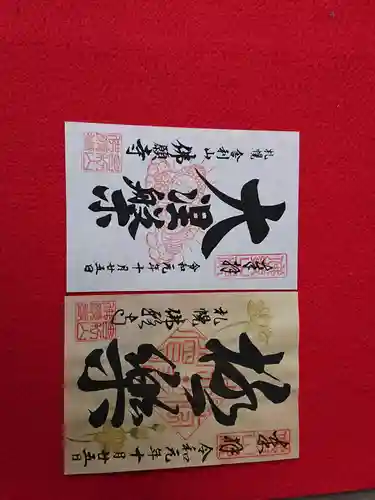 奉拝
令和元年十月廿五日
大涅槃
札幌 舎利山 佛願寺
奉拝
令和元年十月廿五日
極楽
札幌 佛願寺